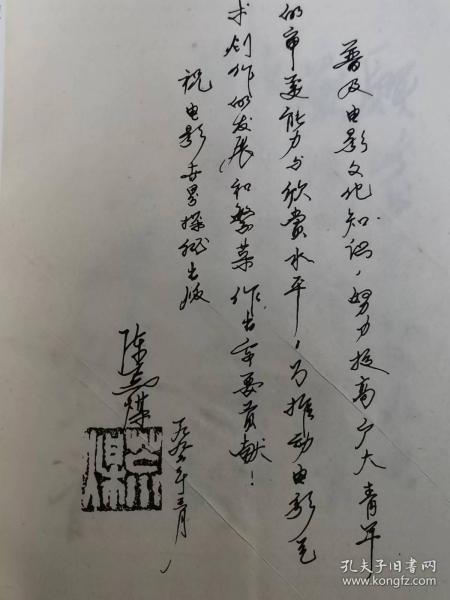 普及电影文化知识，努力提高广大青年
的审美能力与欣赏水平，为推动电影艺
术创作的发展和繁荣作出重要贡献！
祝电影世界探秘出版
陈荒煤
一九九〇年十二月
荒煤
孔夫子旧书网
kongfz.com